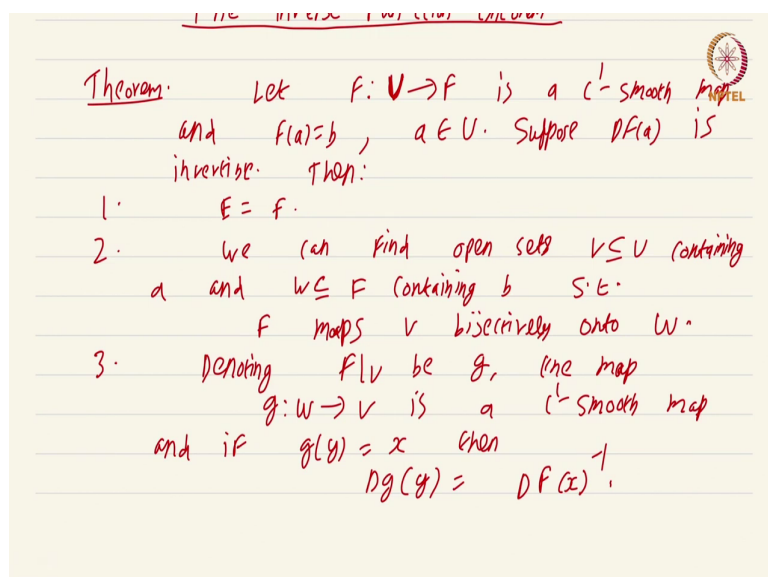 The Inverse Function theorem
Theorem. Let F: U→F is a C¹- smooth map
NPTEL
and F(a)=b, a∈U. Suppose DF(a) is
invertible. Then:
1. E = F.
2. We can find open sets V⊆U containing
a and W⊆F containing b s.t.
F maps V bijectively onto W.
3. Denoting F|V be g, the map
g: W→V is a C¹- smooth map
and if g(y) = x then
Dg(y) = DF(x)⁻¹.